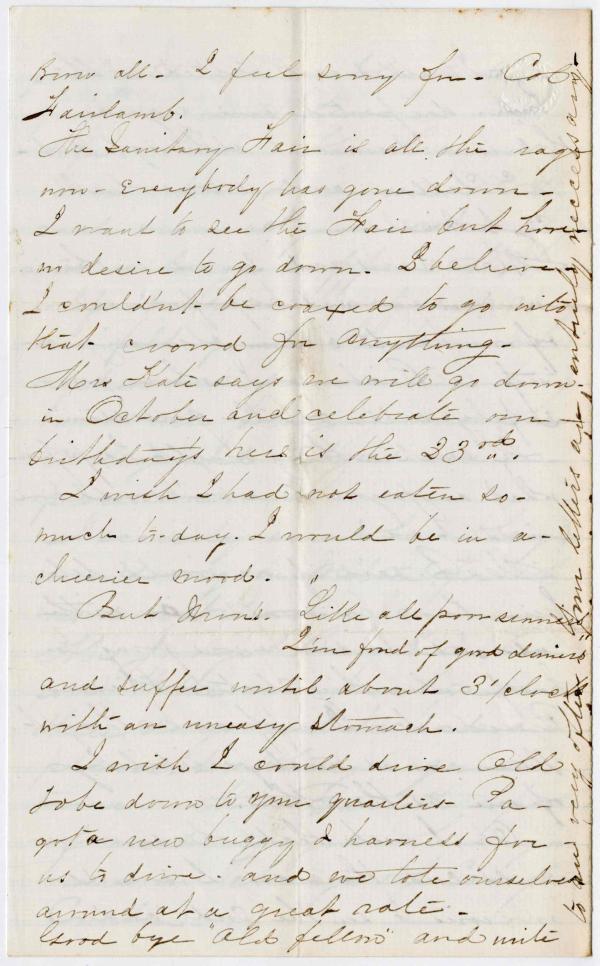 all - I feel sorry for - Col
Fairlamb.
The Sanitary Fair is all the rage
now - Everybody has gone down -
I want to see the Fair but have
no desire to go down. I believe
I couldn't be coaxed to go into
that crowd for anything -
Mrs Kate says we will go down -
in October and celebrate our -
birthday's hers is the 23rd.
I wish I had not eaten so -
much to-day. I would be in a -
cheerier mood.
But "Like all poor sinners
I'm fond of good dinners"
and suffer until about 3 o'clock
with an uneasy stomach.
I wish I could drive Old
Tobe down to your quarters - Pa -
got a new buggy & harness for
us to drive. and we tote ourselves
around at a great rate -
Good bye "Old fellow" and write
to me very often. Your letters are entirely neccessary -